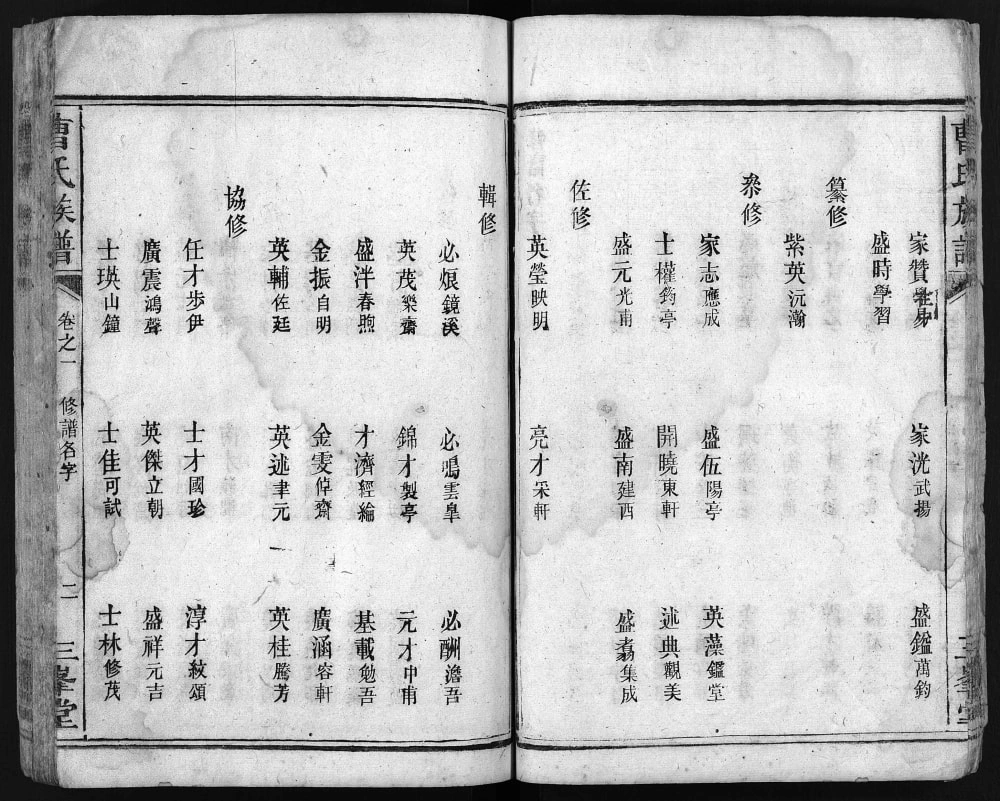 曹氏族譜
三峯堂
家贊 家洸武揚 盛鑑萬鈞
盛時學習
纂修
紫英沅瀚
叅修
家志應成 盛伍陽亭 英藻鑑堂
士權筠亭 開曉東軒 述典觀美
盛元光甫 盛南建西 盛翥集成
佐修
英瑩映明 亮才采軒
輯修
必烺鏡溪 必鳴雲臯 必酬澹吾
英茂樂齋 錦才製亭 元才中甫
盛泮春煦 才濟經綸 基載勉吾
金振自明 金雯倬齋 廣涵容軒
英輔佐廷 英述聿元 英桂騰芳
協修
任才步伊 士才國珍 淳才紋頌
廣震鴻聲 英傑立朝 盛祥元吉
士瑛山鐘 士佳可試 士林修茂
曹氏族譜 卷之一 修譜名字 二 三峯堂